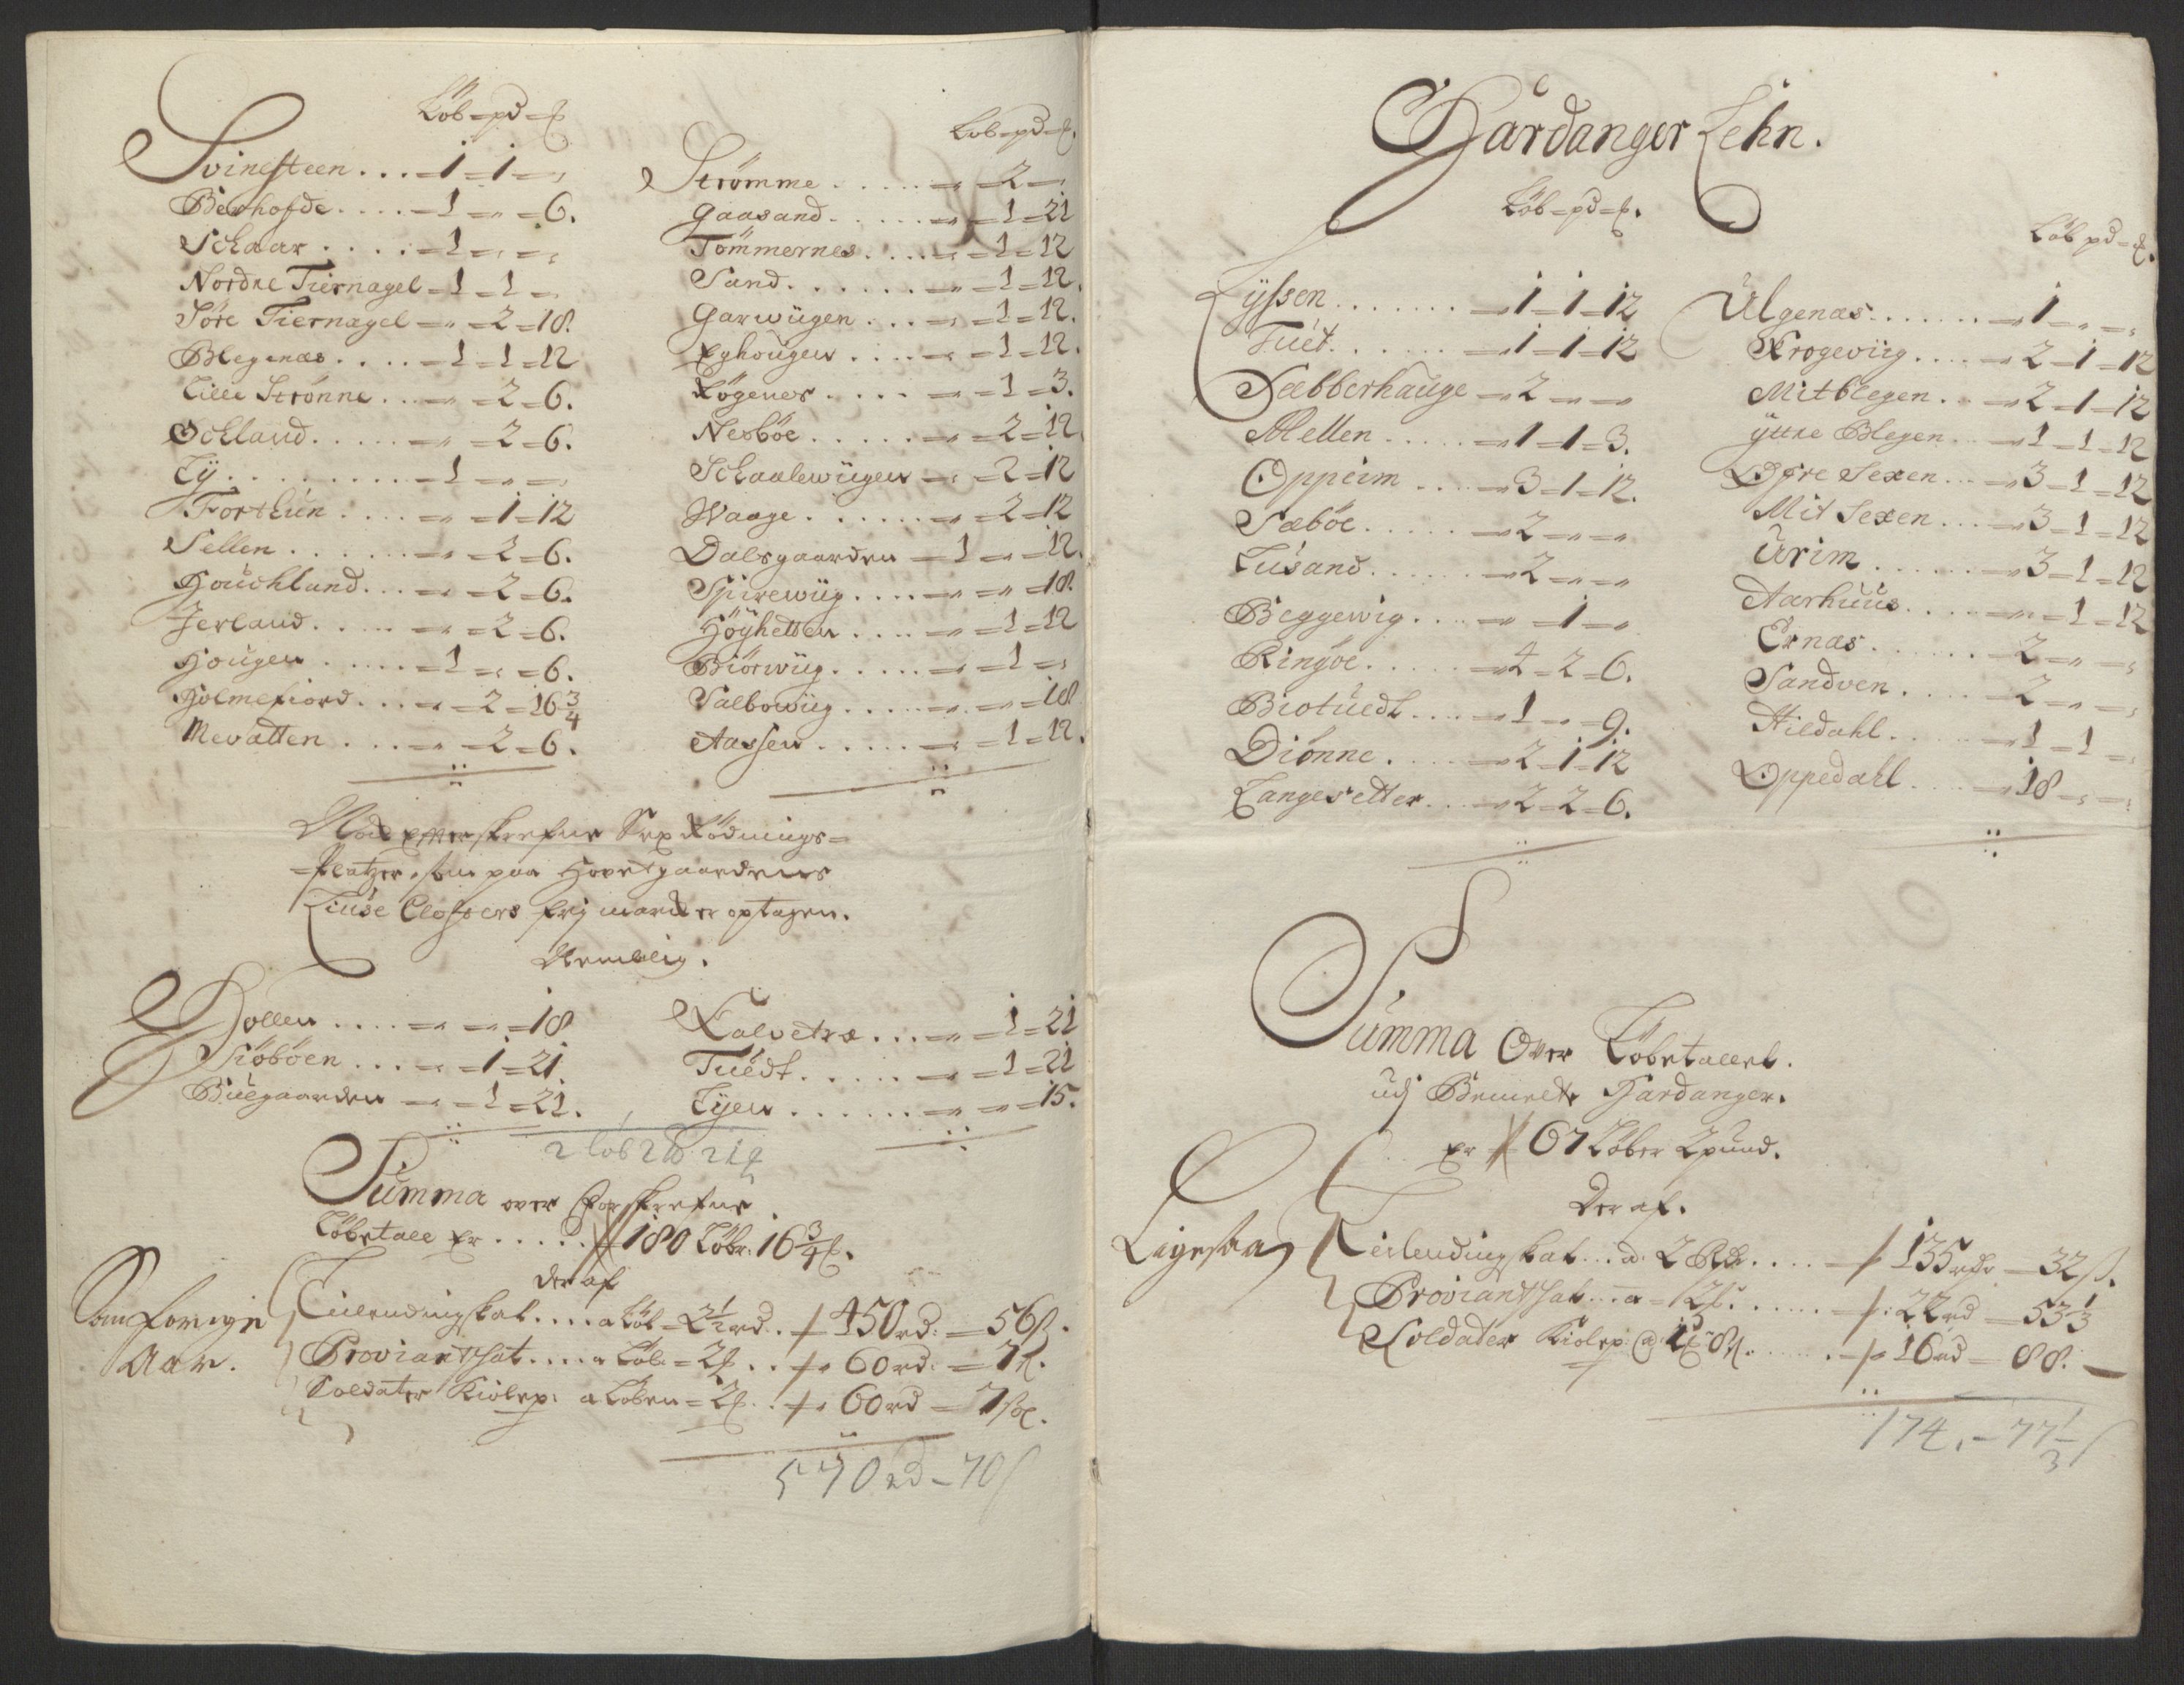 Løb - pd - ℔
Svinesteen . . . - 1 - 1 - "
Berhofde . . . . - 1 - " - 6.
Schaar . . . . - 1 - " - "
Nordre Tiernagel - 1 - 1 - "
Søre Tiernagel - " - 2 - 18.
Blegenæs . . . . - 1 - 1 - 12
Lille Strønne . . - " - 2 - 6.
Ochland . . . . . - " - 2 - 6.
Ly . . . . . . . . . - 1 - " - "
Forthun . . . . - " - 1 - 12
Sellen . . . . . . - " - 2 - 6.
Houchland . . . - " - 2 - 6.
Jerland . . . . . - " - 2 - 6.
Hougen . . . . . - 1 - " - 6.
Holmefiord . . . - " - 2 - 16 3/4
Mevatten . . . - " - 2 - 6.
Løb - pd - ℔.
Strømme . . . . . - " - 2 - "
Gaasand . . . . . - " - 1 - 21
Tømmernes . . . . - " - 1 - 12
Sand . . . . . . . - " - 1 - 12.
Garwügen . . . - " - 1 - 12.
Eghougen . . . . - " - 1 - 12.
Køgenes . . . . - " - 1 - 3.
Nesbøe . . . . . - " - 2 - 12.
Schaalewügen - " - 2 - 12
Waage . . . . . . - " - 2 - 12
Dalsgaarden - 1 - " - 12.
Spirewüg . . . . - " - " - 18.
Høyhetten . . . . - " - 1 - 12
Biørwüg . . . . . - " - 1 - "
Salbowüg . . . . - " - " - 18
Aassen . . . . . - " - 1 - 12.
Noch Efterskrefne Sex Rødnings=
=platzer, som paa Hovetgaardens
Liuse Closters frj march er optagen.
Nemblig.
Hollen . . . . - " - " - 18
Siøbøen . . . - " - 1 - 21.
Büegaarden - " - 1 - 21.
Kalvetræ . . . - " - 1 - 21
Tüedt . . . . . - " - 1 - 21
Lyen . . . . . . . - " - " - 15.
2 løb 2 pd 21 ℔
Summa over Forskrefne
Løbetall Er . . . . . 180 Løbr: 16 3/4 ℔.
Der af
Som forrige
Aar.
Leilendingskat . . . . a Løb = 2 1/2 rd . . 450 rd: - 56 ß.
Proviantskat . . . . a Løb = 2 ℔ . . 60 rd: - 7 ß.
Soldater Kiolep: a Løben = 2 ℔ . . 60 rd - 7 ß.
570 rd - 70 ß
Hardanger Lehn.
Løb - pd - ℔.
Lyssen . . . . . . . - 1 - 1 - 12
Tuet . . . . . . . - 1 - 1 - 12
Sæbberhauge - 2 - " - "
Mellen . . . . . - 1 - 1 - 3.
Oppeim . . . . - 3 - 1 - 12.
Sæbøe . . . . . - 2 - " - "
Lusand . . . . . . - 2 - " - "
Beggewig . . . - " - 1 - "
Ringøe . . . . . - 4 - 2 - 6.
Biotuedt . . . . - 1 - " - 9.
Diønne . . . . . - 2 - 1 - 12
Langesetter . . . - 2 - 2 - 6.
Løb pd - ℔.
Ulgenæs . . . . . . - 1 - " - "
Krogeviig . . . . - 2 - 1 - 12
Mitblegen . . - 2 - 1 - 12
yttre Blegen . . - 1 - 1 - 12
Øfre Sexen . . . - 3 - 1 - 12
Mit Sexen . . . - 3 - 1 - 12
Urim . . . . . . . - 3 - 1 - 12
Aarhuus . . . . - " - 1 - 12
Ernæs . . . . . . - 2 - " - "
Sandven . . . . - 2 - " - "
Hildahl . . . . . - 1 - 1 - "
Oppedahl . . . . - 18 - " - "
Summa Over Løbetallet.
udj Bemelte Hardanger.
Er 67 Løber 2 pund.
Der af.
Ligesaa
Leilendingskat . . . a 2 Rdr . . . . 135 rdr - 32 ß.
Proviantskat . . . a - 2 ℔ . . . . . 22 rd - 53 1/3
Soldater Kiolep: a 8 ß . . . . . 16 rd - 88. -
174. - 77 1/3 ß